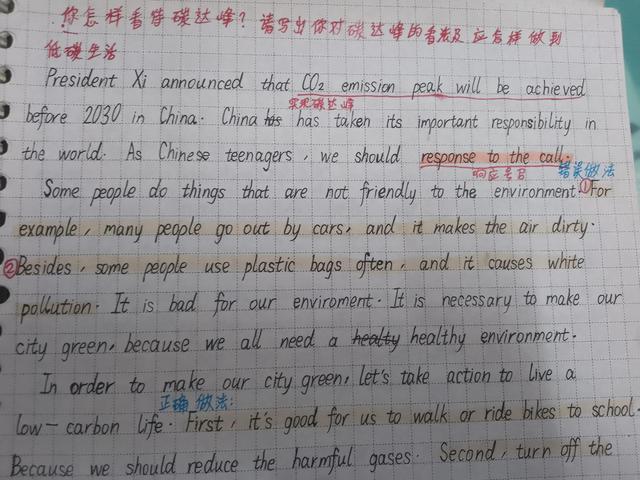 你怎样看待碳达峰？请写出你对碳达峰的看法及应怎样做到
低碳生活
President Xi announced that CO₂ emission peak will be achieved
实现碳达峰
before 2030 in China. China has has taken its important responsibility in
the world. As Chinese teenagers, we should response to the call.
响应号召 错误做法
Some people do things that are not friendly to the environment. ①For
example, many people go out by cars, and it makes the air dirty.
②Besides, some people use plastic bags often, and it causes white
pollution. It is bad for our enviroment. It is necessary to make our
city green, because we all need a healty healthy environment.
In order to make our city green, let's take action to live a
正确做法:
low-carbon life. First, it's good for us to walk or ride bikes to school.
Because we should reduce the harmful gases. Second, turn off the